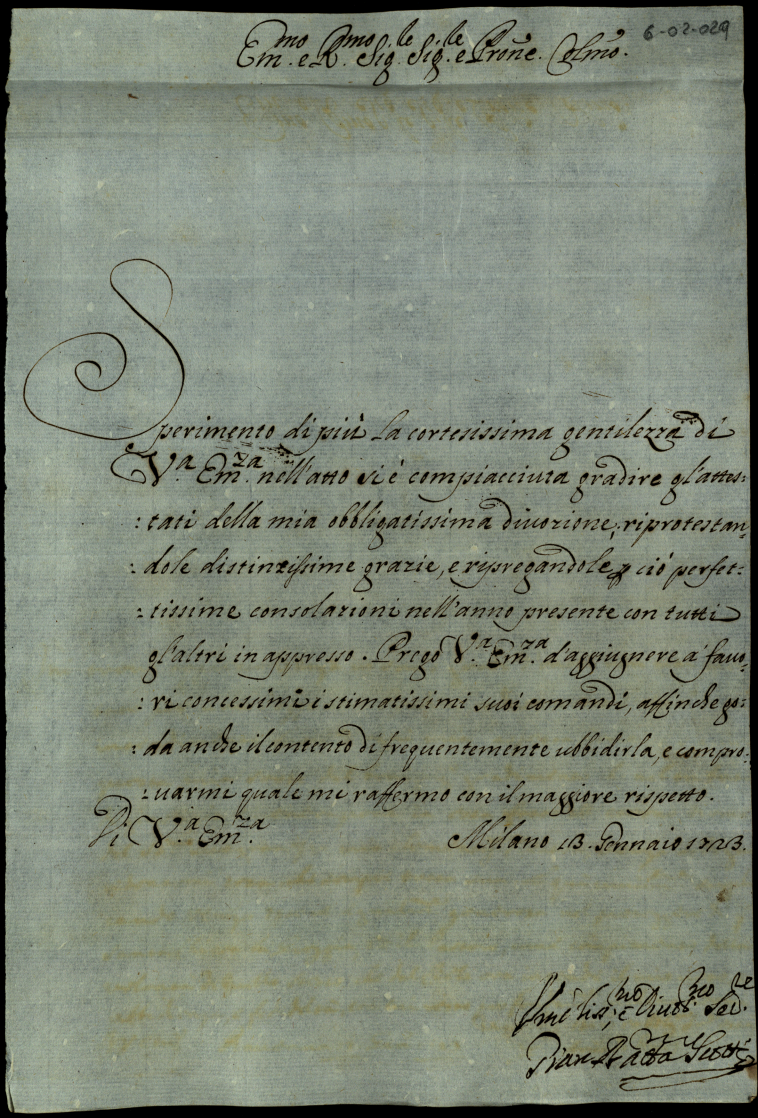 6-02-029
Em.mo e R.mo Sig.le Sig.le e Prone. Colmo.
Sperimento di più la cortesissima gentilezza di
V.a Em.za nell'atto si è compiacciuta gradire gl'attes:
:tati della mia obbligatissima divozione; riprotestan:
:dole distintissime grazie, e ripregandole p ciò perfet:
:tissime consolazioni nell'anno presente con tutti
gl'altri in appresso. Prego V.a Em.za d'aggiugnere a' favo:
:ri concessimi i stimatissimi suoi comandi, affinche go:
:da anche il contento di frequentemente ubbidirla, e compro:
:uarmi quale mi raffermo con il maggiore rispetto.
Di V.a Em.za Milano 13. Gennaio 1723.
Umiliss.mo e Diuot.mo Ser.re